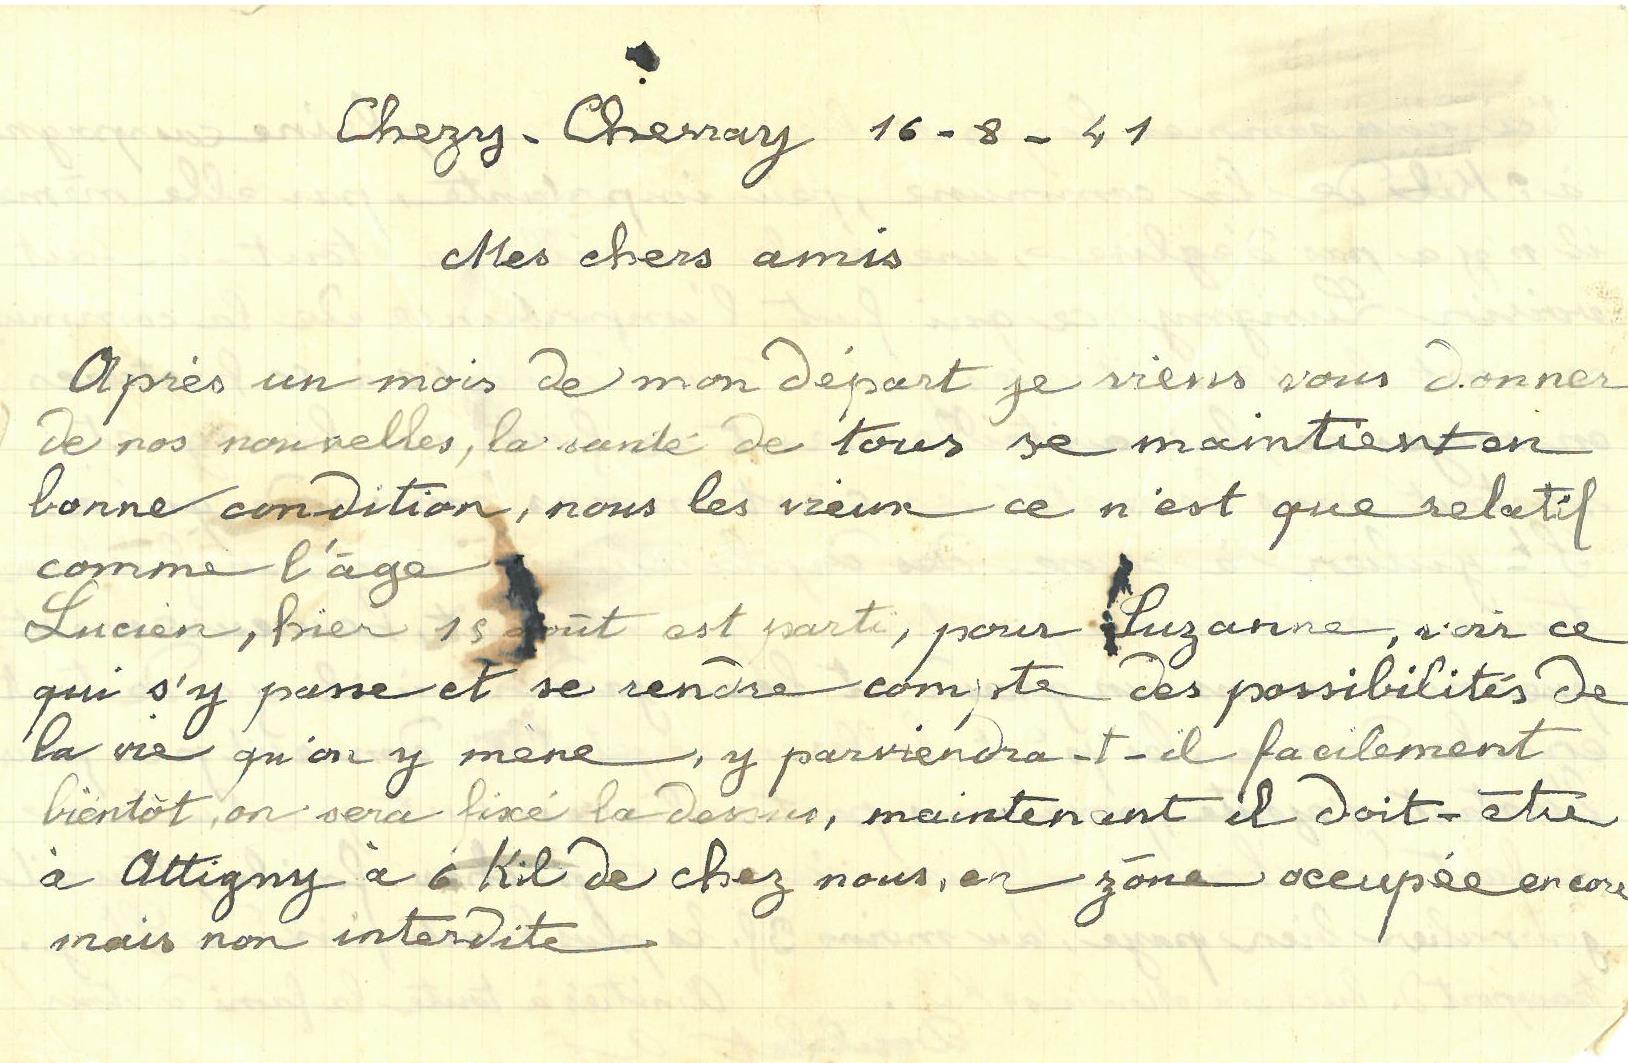 Chezy - Chevray 16 - 8 - 41
Mes chers amis
Après un mois de mon départ je viens vous donner
de nos nouvelles, la santé de tous se maintient en
bonne condition, nous les vieux ce n'est que relatif
comme l'âge
Lucien, hier 15 août est parti, pour Suzanne, voir ce
qui s'y passe et se rendre compte des possibilités de
la vie qu'on y mène, y parviendra-t-il facilement
bientôt, on sera fixé la dessus, maintenant il doit-être
à Attigny à 6 Kil de chez nous, en zône occupée encore
mais non interdite